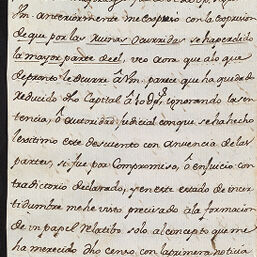 Vm anteriormente me Compuso con la expresion
de que por las Ruinas ocurridas se ha perdido
la mayor parte de el, veo aora que a lo que
de pronto le ocurre â Vm, parece que ha quedado
reducido dho Capital â 10 dps, ignorando la sen
tencia, ô autoridad judicial con que se ha hecho
lexitimo este descuento con anuencia de las
partes, si fue por Compromiso, ô en juicio con
tradictorio declarado, y en este estado de incer
tidumbre me he visto precisado a la formacion
de un papel Relatibo solo al concepto que me
ha merecido dho censo con la primera noticia